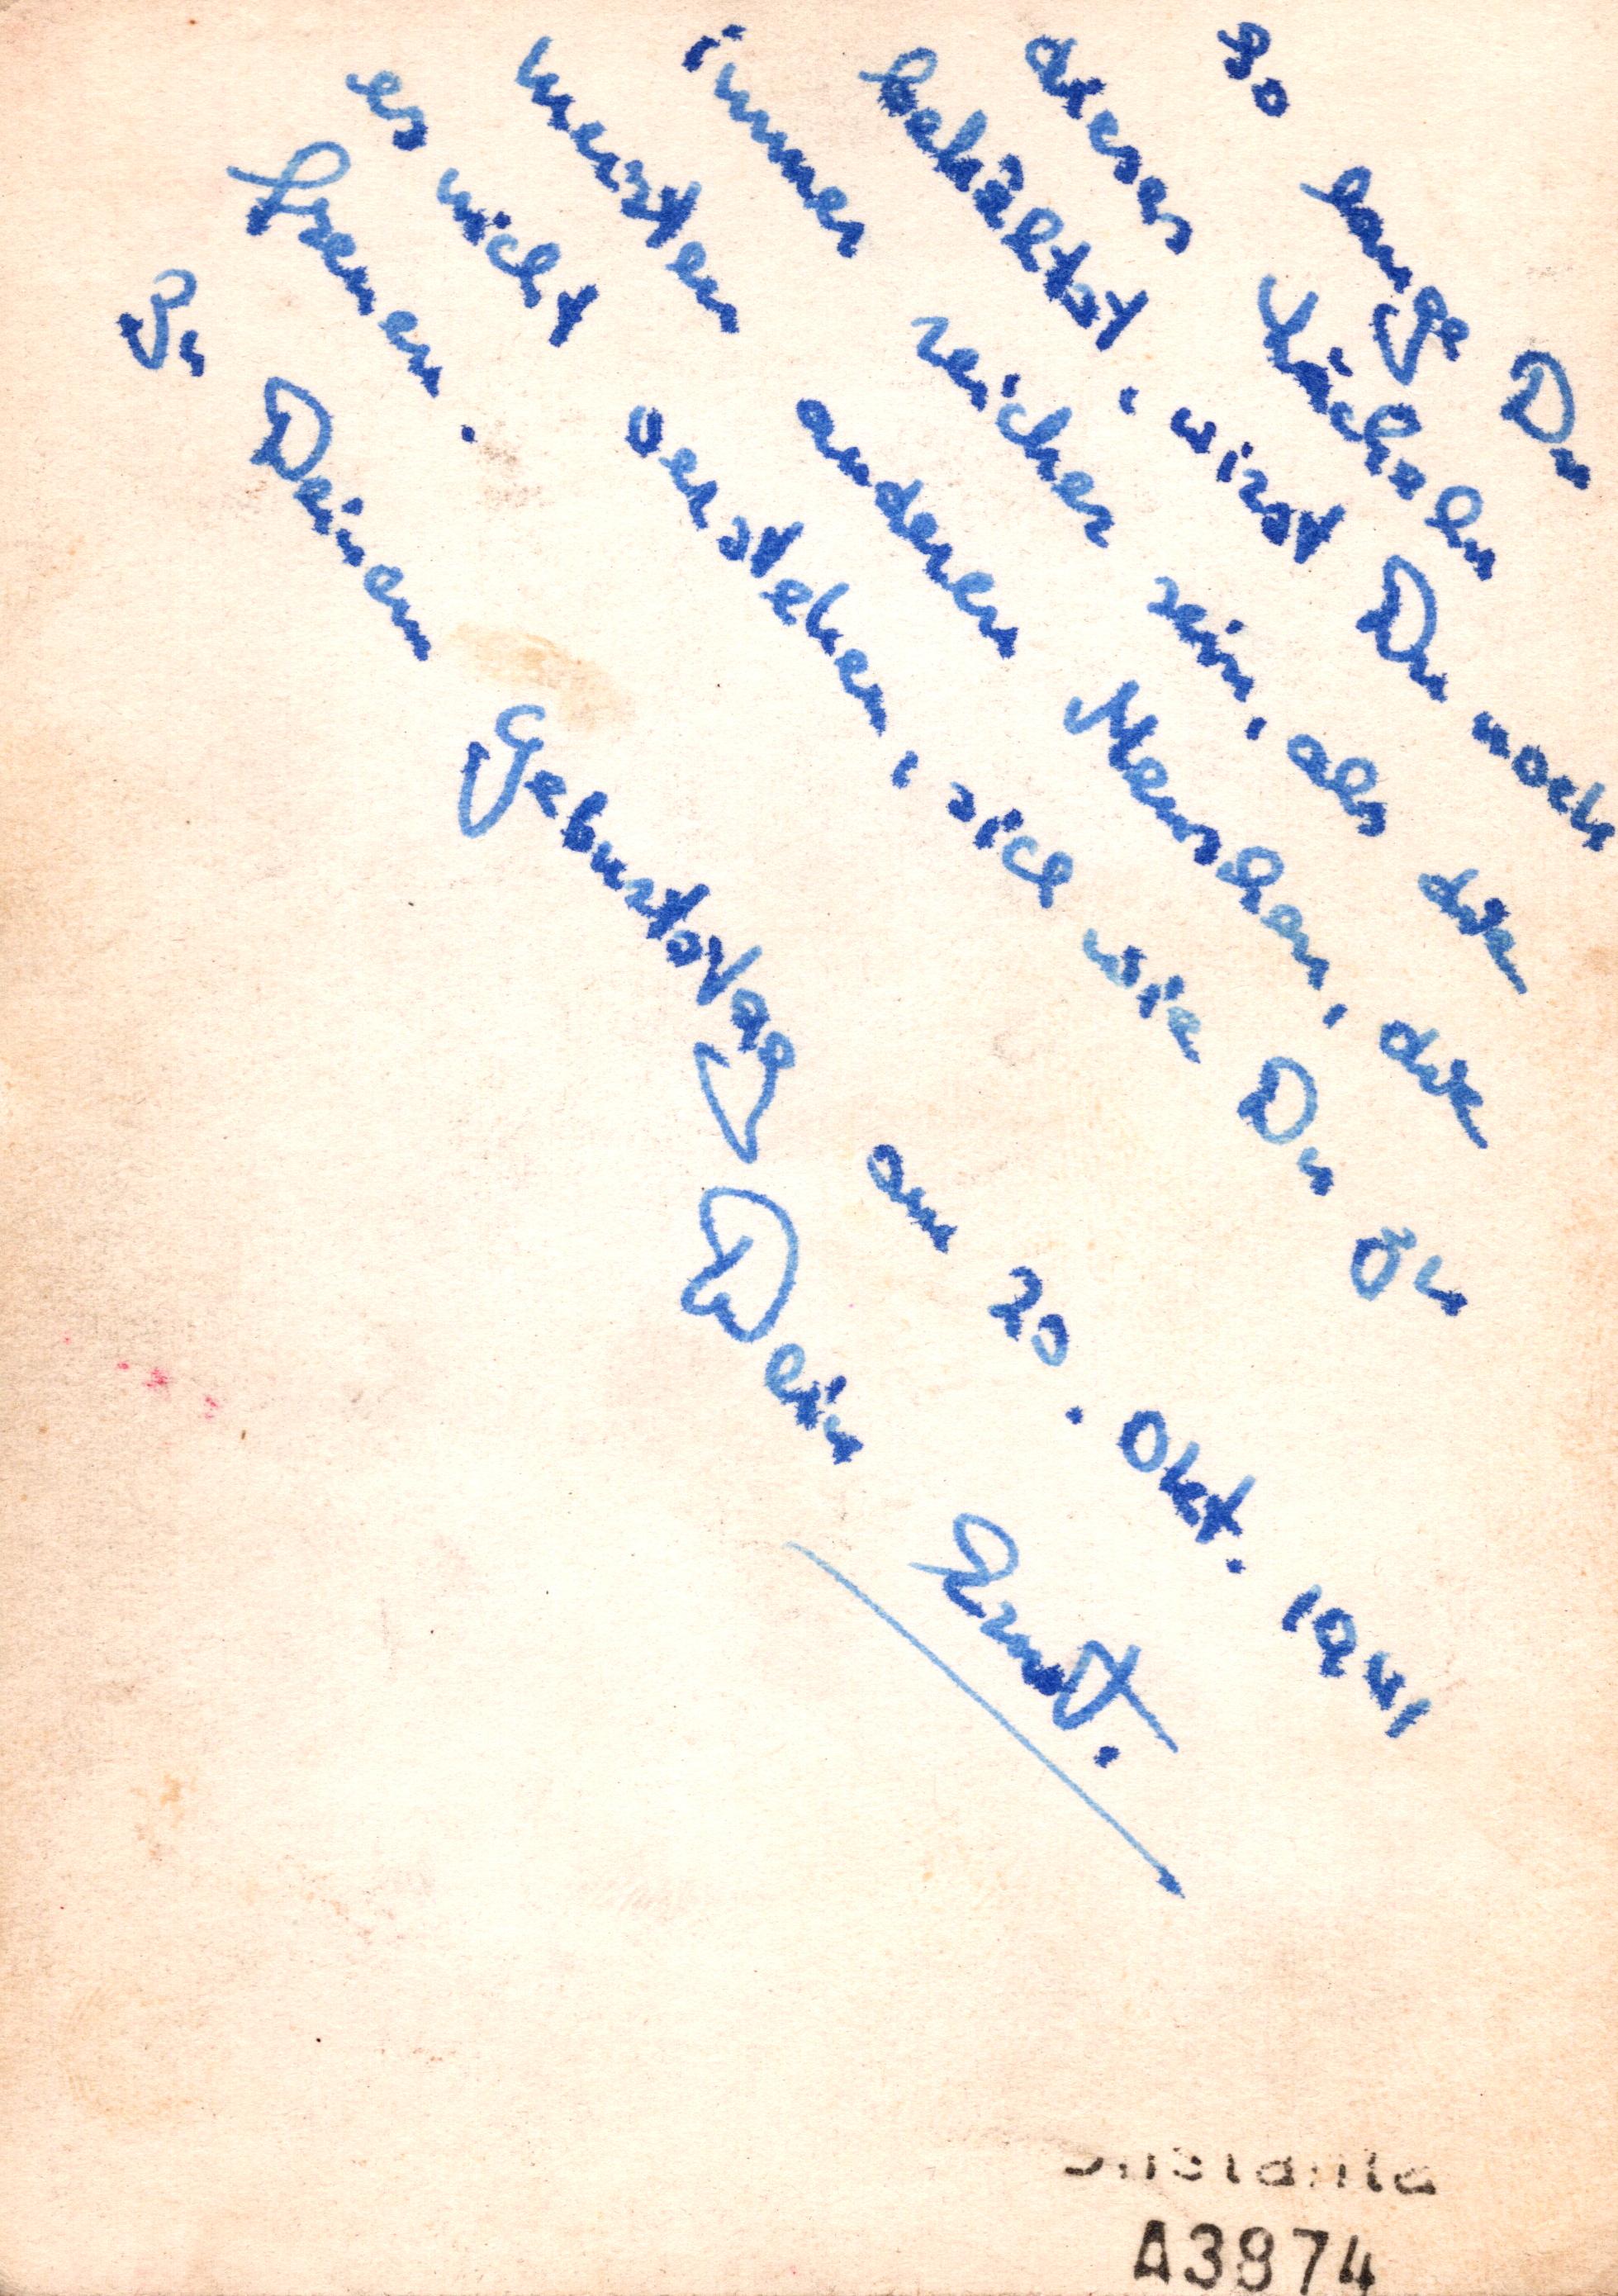 So lange Du
dieses Lächeln
behältst, wirst Du noch
immer reicher sein, als die
meisten anderen Menschen, die
es nicht verstehen, sich wie Du zu
freuen.
Zu Deinem Geburtstag am 20. Okt. 1941
Dein Ernst.
A3874